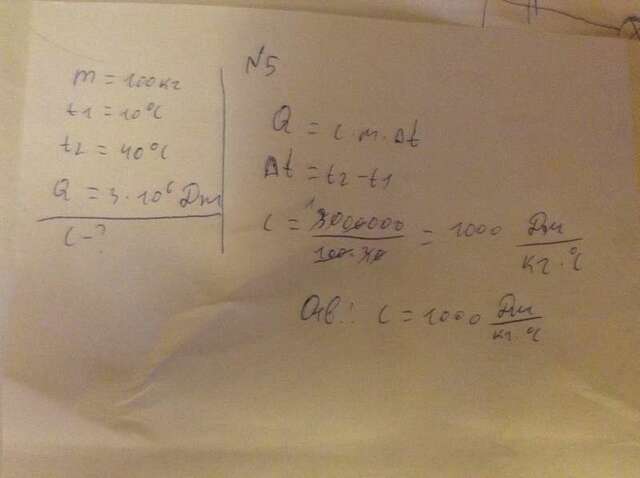 N5
m = 100кг
t1 = 10°C
t2 = 40°C
Q = 3·10⁶ Дж
C - ?
Q = c·m·Δt
Δt = t2 - t1
C = 3000000 / 100·30 = 1000 Дж / кг·°C
Отв.: C = 1000 Дж / кг·°C